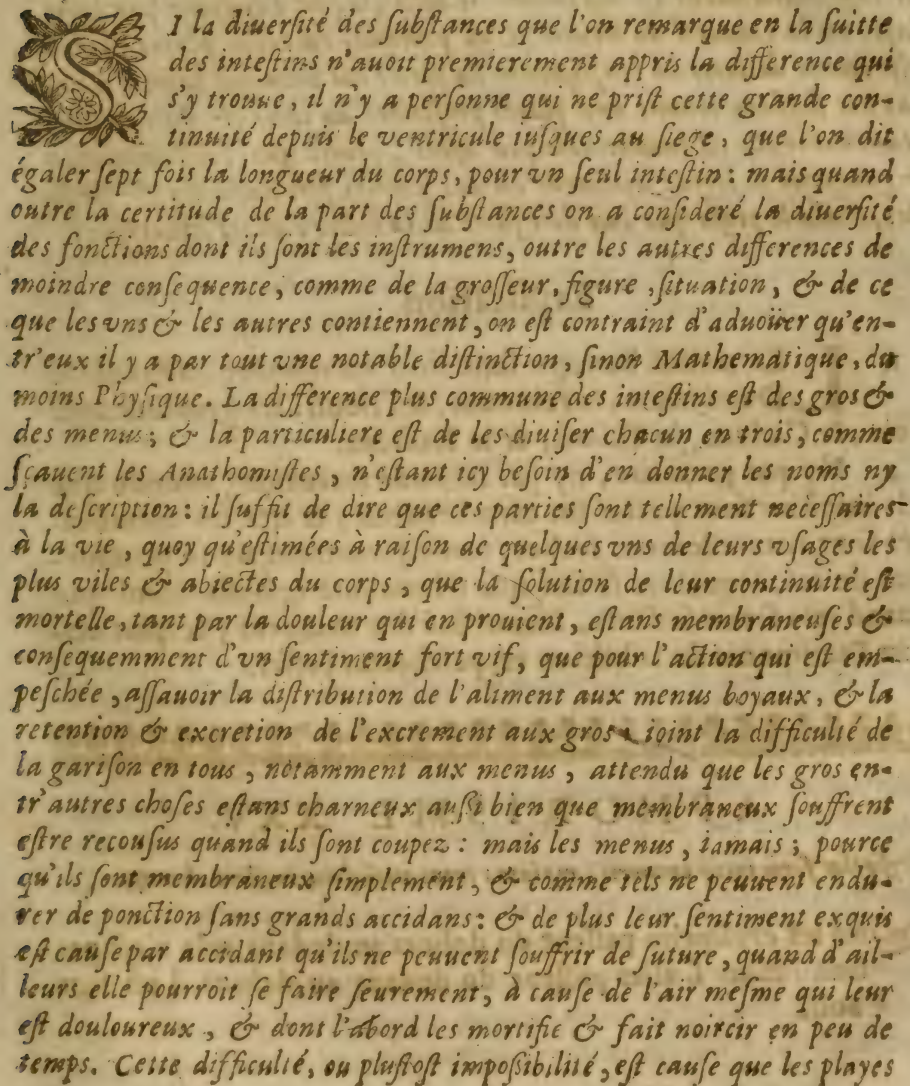 SI la diuerſité des ſubſtances que l'on remarque en la ſuitte
des inteſtins n'auoit premierement appris la difference qui
s'y trouue, il n'y a perſonne qui ne priſt cette grande con-
tinuité depuis le ventricule iuſques au ſiege, que l'on dit
égaler ſept fois la longueur du corps, pour vn ſeul inteſtin: mais quand
outre la certitude de la part des ſubſtances on a conſideré la diuerſité
des fonctions dont ils ſont les inſtrumens, outre les autres differences de
moindre conſequence, comme de la groſſeur, figure, ſituation, & de ce
que les vns & les autres contiennent, on eſt contraint d'aduoüer qu'en-
tr'eux il y a par tout vne notable diſtinction, ſinon Mathematique, du
moins Phyſique. La difference plus commune des inteſtins eſt des gros &
des menus; & la particuliere eſt de les diuiſer chacun en trois, comme
ſçauent les Anathomiſtes, n'eſtant icy beſoin d'en donner les noms ny
la deſcription: il ſuffit de dire que ces parties ſont tellement neceſſaires
à la vie, quoy qu'eſtimées à raiſon de quelques vns de leurs vſages les
plus viles & abiectes du corps, que la ſolution de leur continuité eſt
mortelle, tant par la douleur qui en prouient, eſtans membraneuſes &
conſequemment d'vn ſentiment fort vif, que pour l'action qui eſt em-
peſchée, aſſauoir la diſtribution de l'aliment aux menus boyaux, & la
retention & excretion de l'excrement aux gros, ioint la difficulté de
la gariſon en tous, nòtamment aux menus, attendu que les gros en-
tr'autres choſes eſtans charneux auſſi bien que membraneux ſouffrent
eſtre recouſus quand ils ſont coupez: mais les menus, iamais; pource
qu'ils ſont membraneux ſimplement, & comme tels ne peuuent endu-
rer de ponction ſans grands accidans: & de plus leur ſentiment exquis
eſt cauſe par accidant qu'ils ne peuuent ſouffrir de ſuture, quand d'ail-
leurs elle pourroit ſe faire ſeurement, à cauſe de l'air meſme qui leur
eſt douloureux, & dont l'abord les mortifie & fait noircir en peu de
temps. Cette difficulté, ou pluſtoſt impoſſibilité, eſt cauſe que les playes